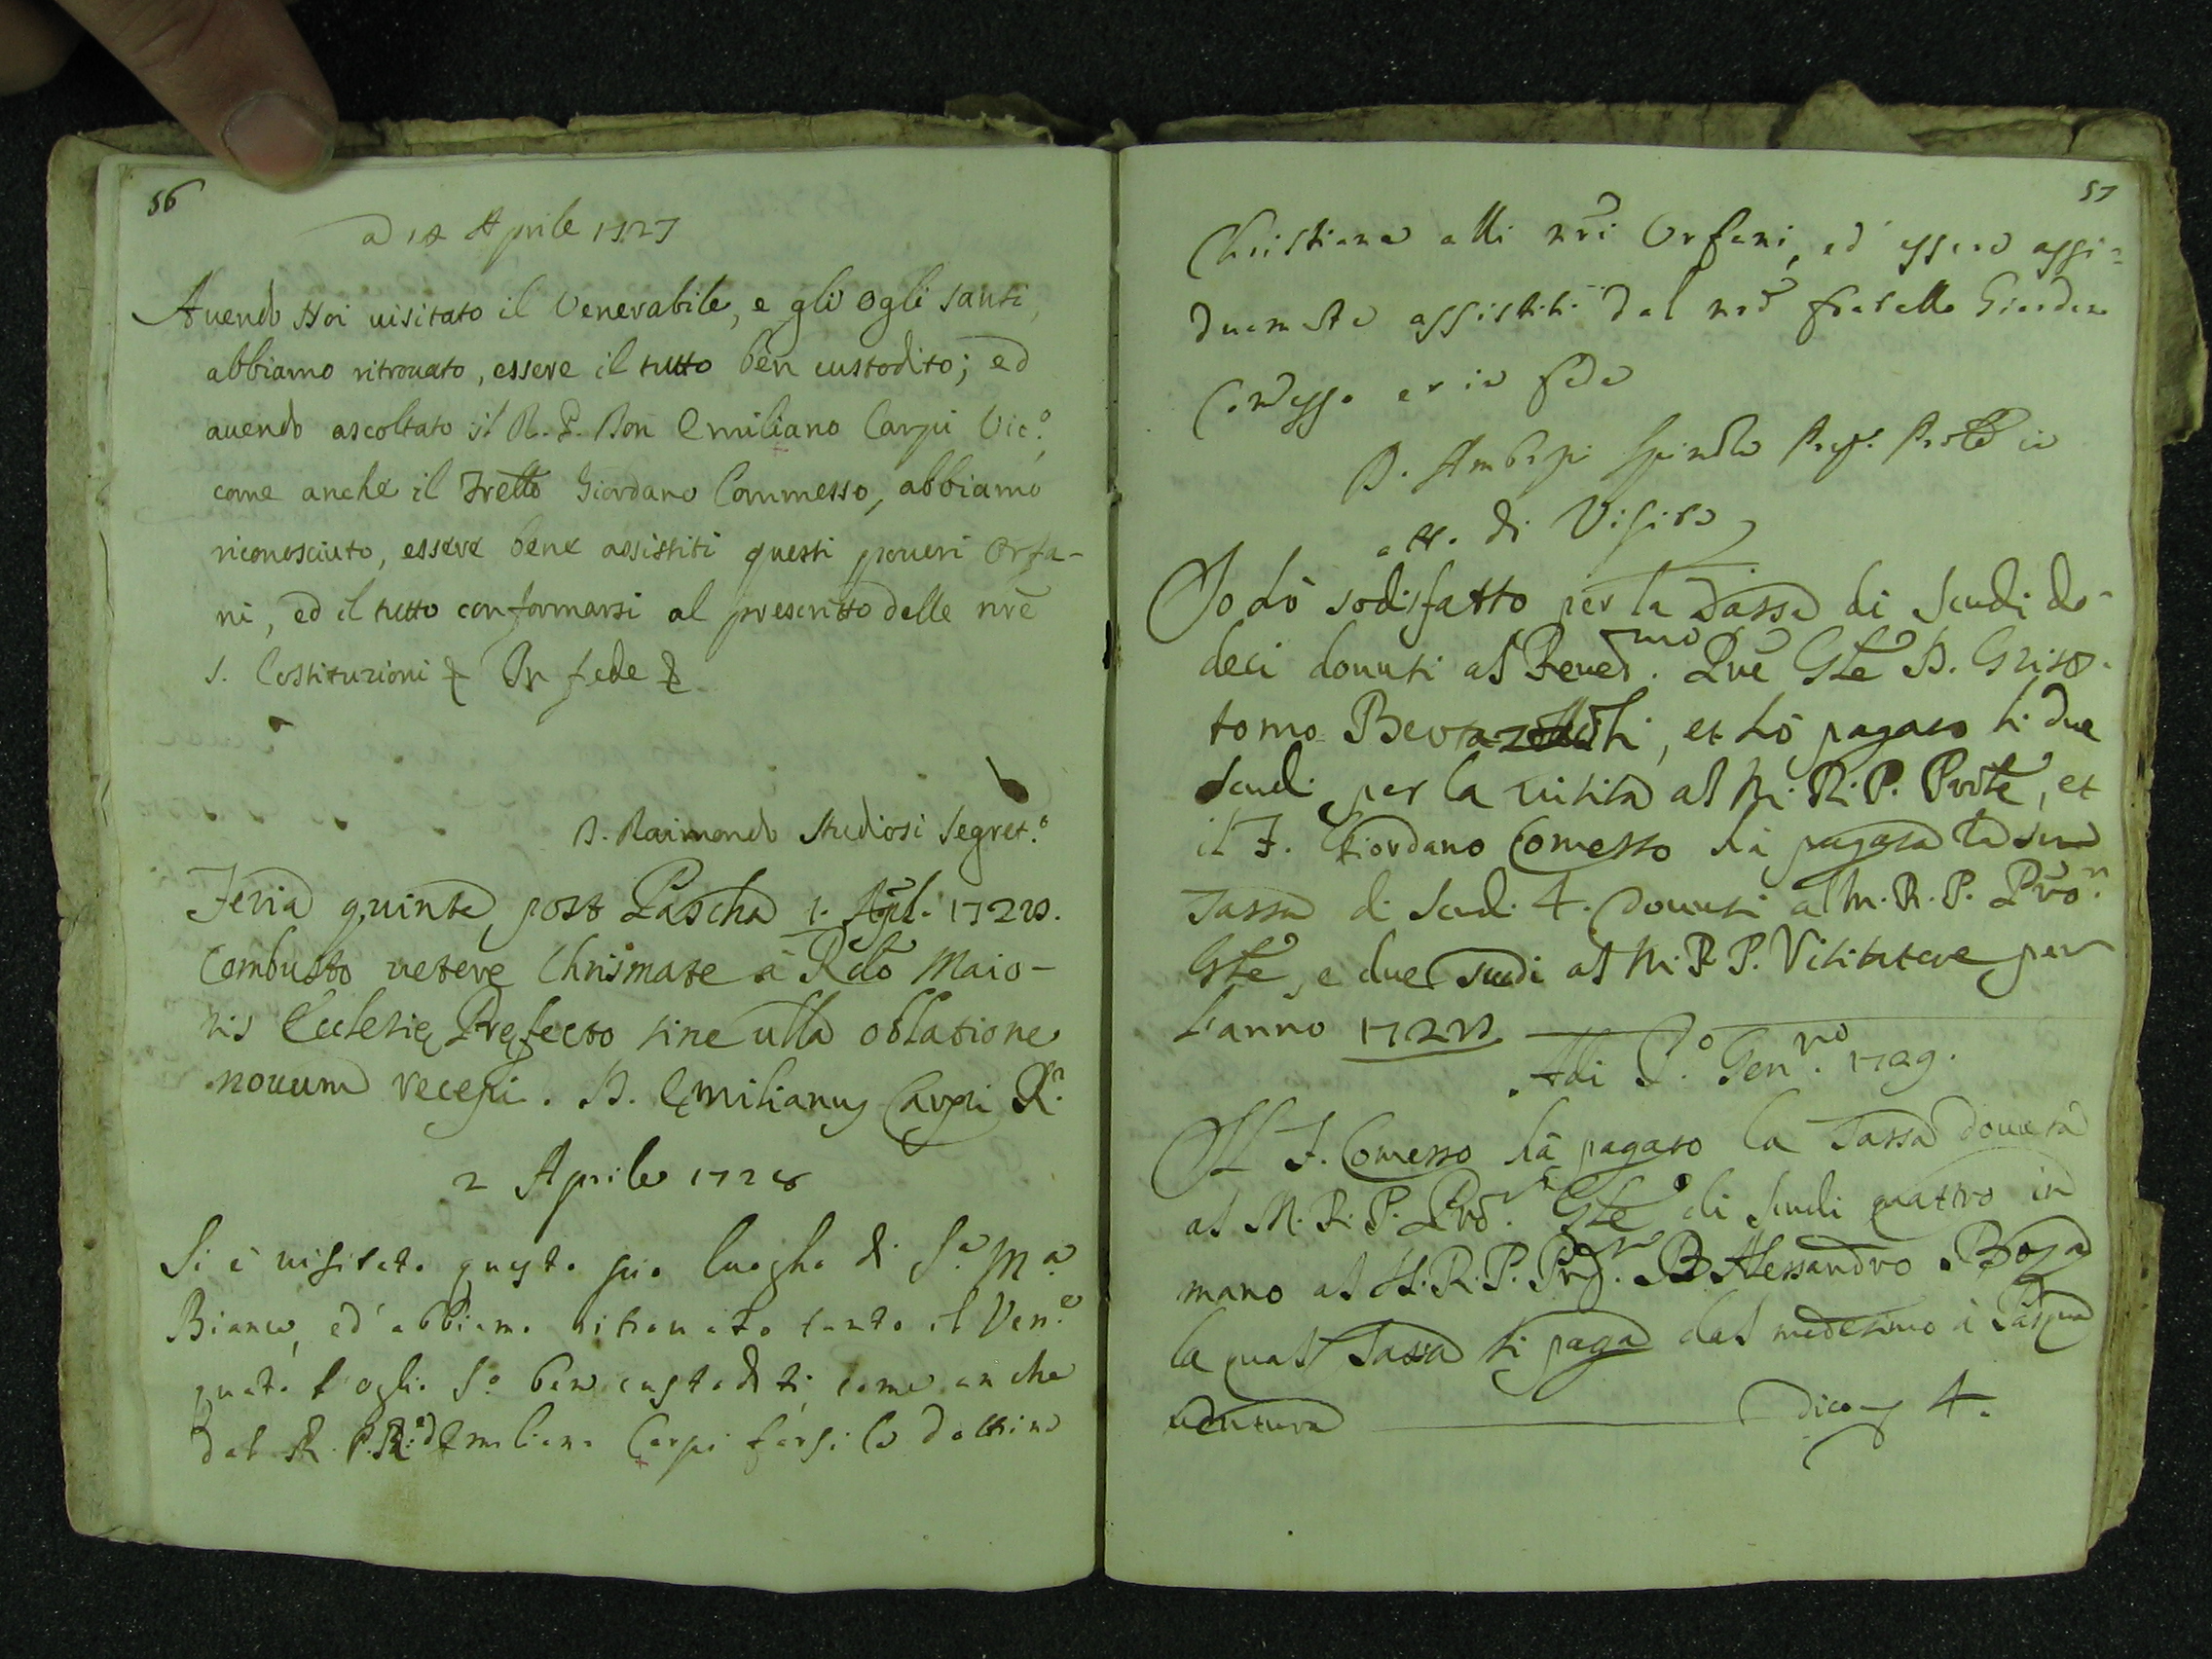 56
a 18 Aprile 1727
Auendo Noi uisitato il Venerabile, e gli ogli santi,
abbiamo ritrouato, essere il tutto ben custodito; ed
auendo ascoltato il R. P. Don Emiliano Carpi Vic.o,
come anche il Frello Giordano Commesso, abbiamo
riconosciuto, essere bene assistiti questi poueri Orfa-
ni, ed il tutto conformarsi al prescritto delle nrē
S. Costituzioni In fede
D. Raimondo Studiosi Segret.o
Feria quinta post Pascha 1. Apl. 1728.
Combusto uetere Chrismate à Rdo Maio-
ris Eclesię Pręfecto sine ulla oblatione
nouum recepi. D. Emilianus Carpi Rr.
2 Aprile 1728
Si è uisitato questo pio luogho di S.a M.a
Bianca, ed' abbiamo ritrouato tanto il Ven.e
quato l'oglio S.o ben custoditi, come anche
dal R. P. D Emiliano Carpi farsi la dottrina
57
Christiana alli nrī Orfani, ed' essere assi=
duamēte assistiti dal nrō fratello Giordano
Comesso et in fede
D. Ambrogi Spinola Prep. Prole in
att. di Visita
Io hò sodisfatto per la Tassa di Scudi do-
deci douuti al Reued.mo Prē Gle D. Griso-
tomo Bertazzoli, et hò pagato li due
Scudi per la uisita al M. R. P. Prole, et
il F. Giordano Comesso hà pagata la sua
Tassa di Scudi 4. douuti al M. R. P. Prōr.
Gle, e due scudi al M. R. P. Visitatore per
l'anno 1728
Adi P.o Gen.ro 1729.
Il F. Comesso hà pagato la Tassa douuta
al M. R. P. Prōr. Gle di Scudi quattro in
mano al M. R. P. Prē. D Alessandro Boza
la qual Tassa si paga dal medesimo à Pasqua
uentura dico 4.